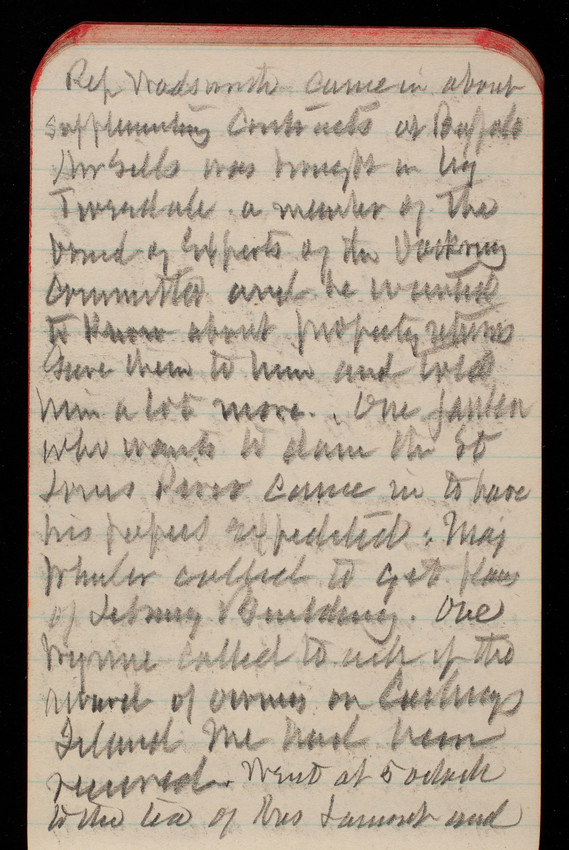 Rep Wadsworth came in about
supplementing Contracts at Buffalo
Mr Sells was brought in by
Truesdale a member of the
board of Experts of the Dockery
Committee and he wanted
to know about property returns
Gave them to him and told
him a lot more. One
who wants to dam the St
Louis River came in to have
his papers expedited. Maj
called to get plans
of Library Building. One
Wynne called to ask if the
award of on Cushings
Island Me had been
received. Went at 5 oclock
to the tea of Mrs Lamont and